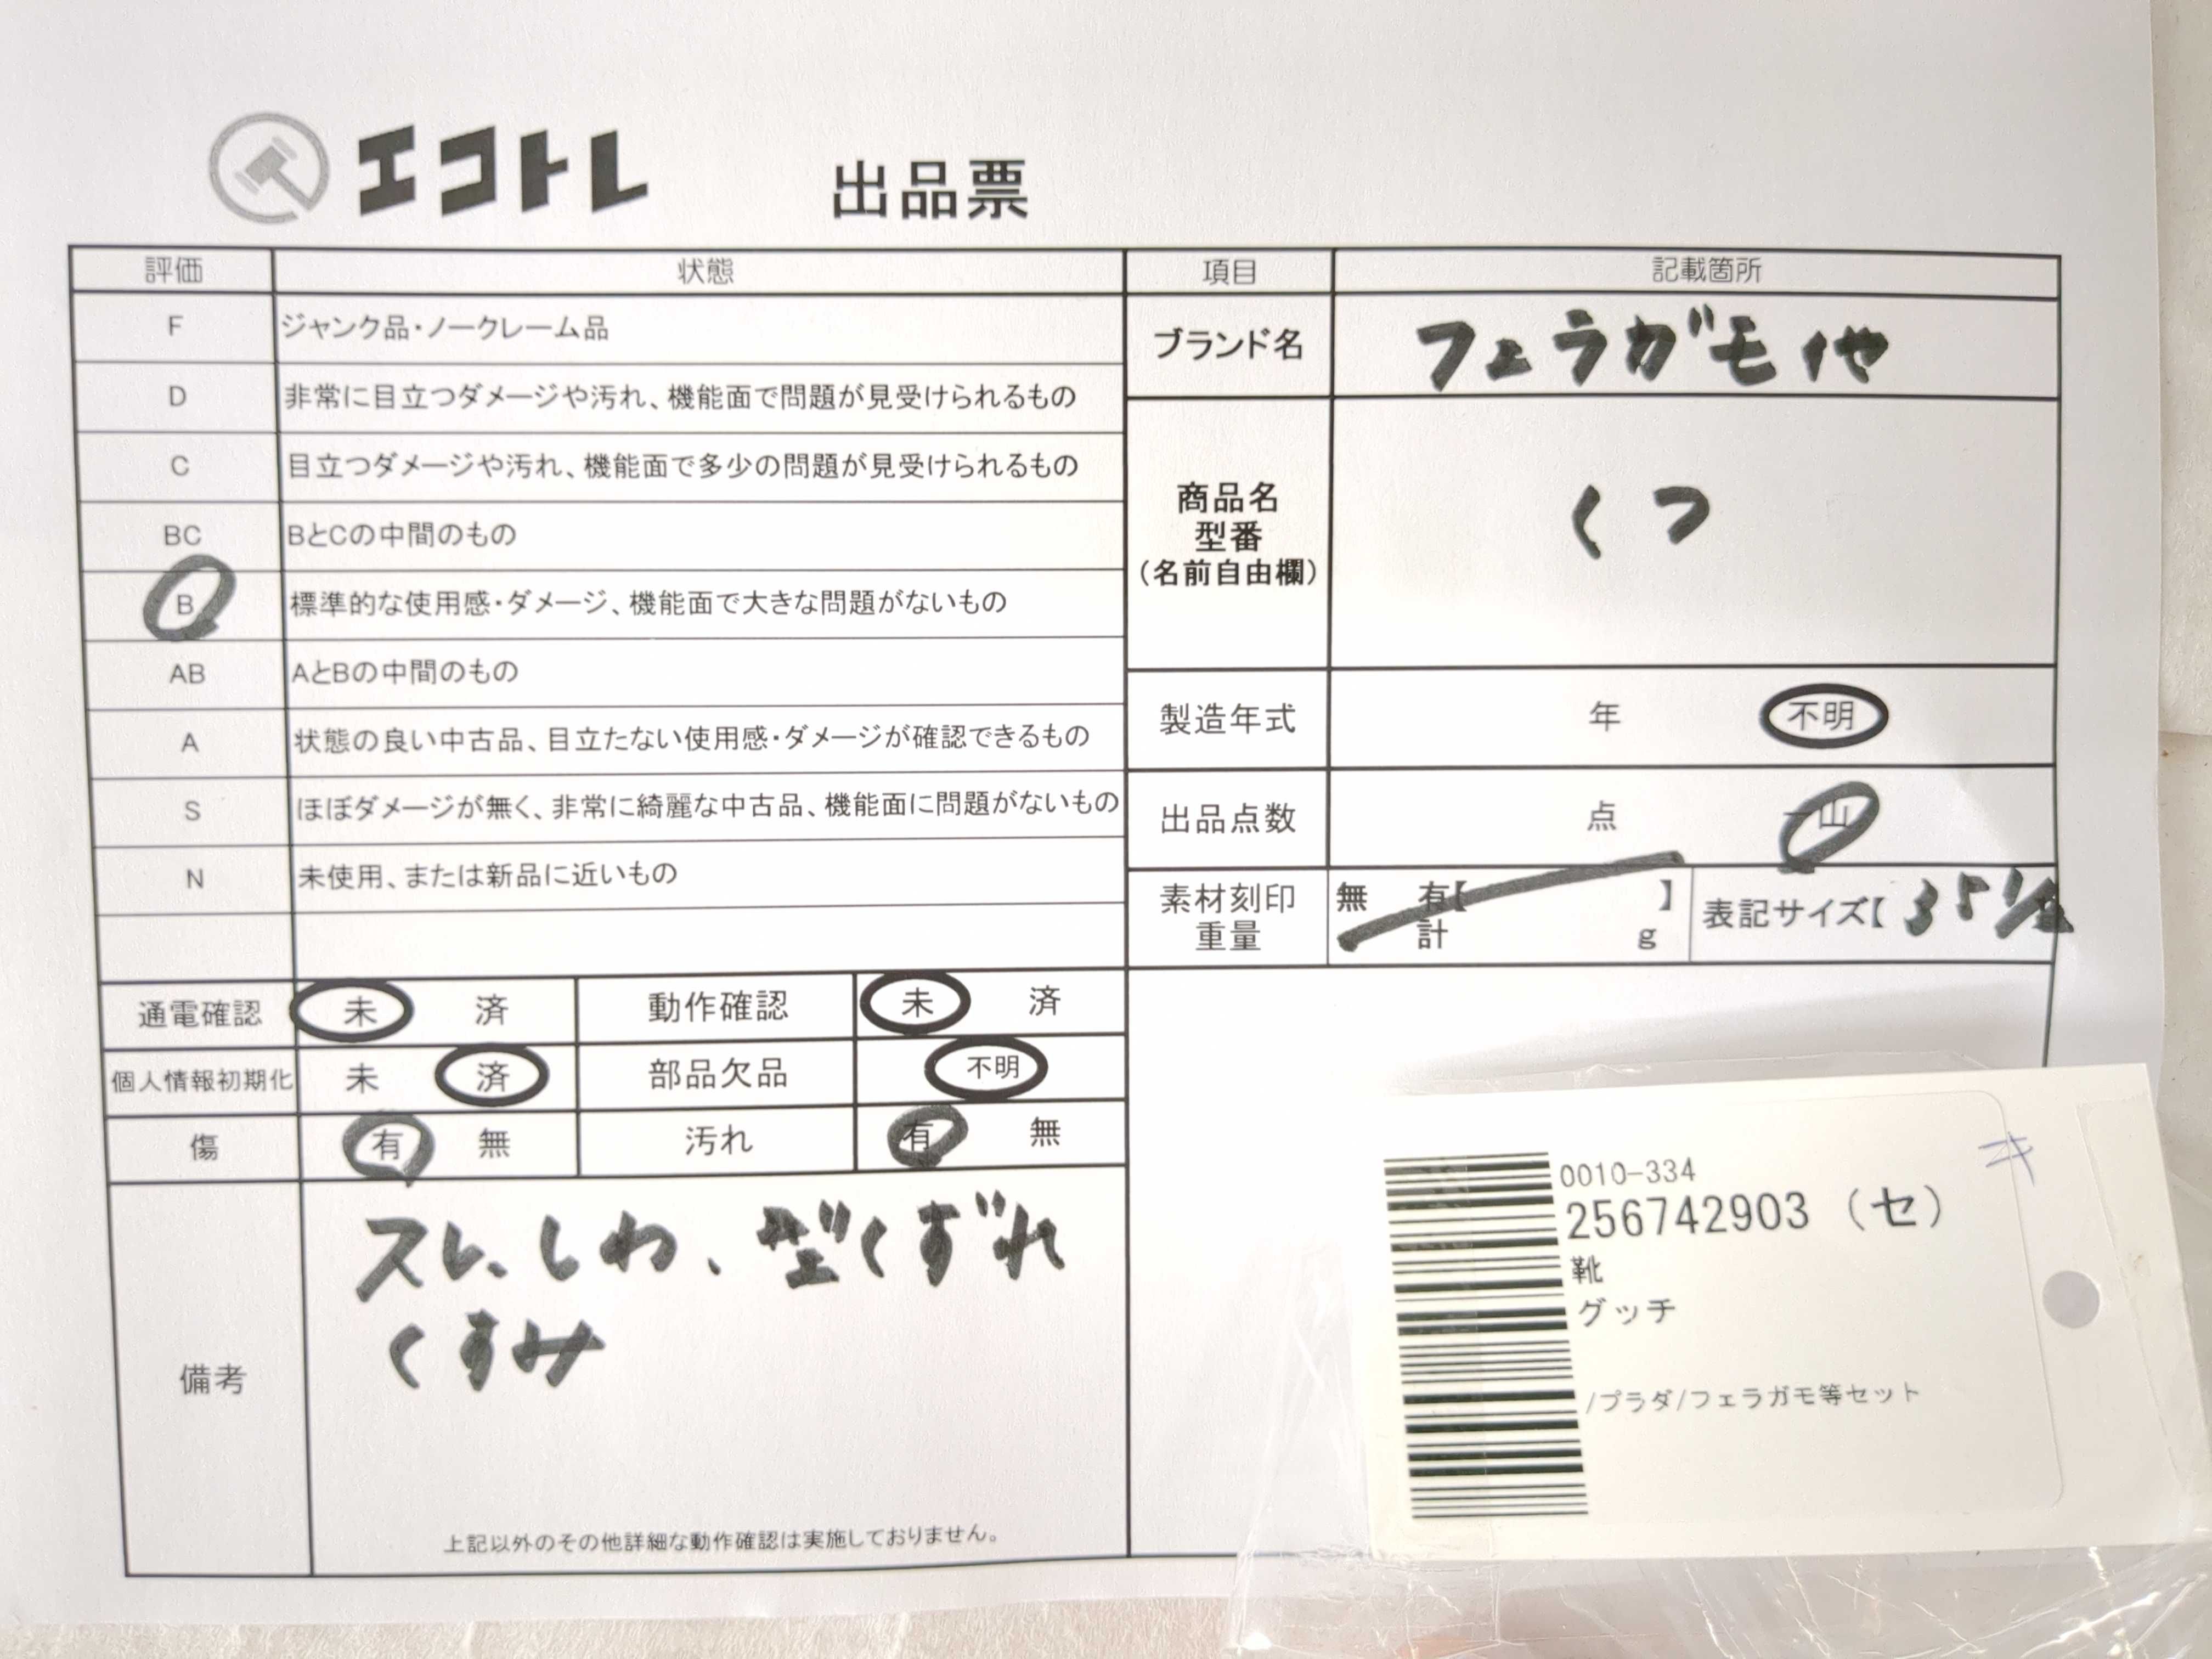 エコトレ 出品票
評価 状態
F ジャンク品・ノークレーム品
D 非常に目立つダメージや汚れ、機能面で問題が見受けられるもの
C 目立つダメージや汚れ、機能面で多少の問題が見受けられるもの
BC BとCの中間のもの
B 標準的な使用感・ダメージ、機能面で大きな問題がないもの
AB AとBの中間のもの
A 状態の良い中古品、目立たない使用感・ダメージが確認できるもの
S ほぼダメージが無く、非常に綺麗な中古品、機能面に問題がないもの
N 未使用、または新品に近いもの
通電確認 未 済 動作確認 未 済
個人情報初期化 未 済 部品欠品 不明
傷 有 無 汚れ 有 無
備考
スレ、しわ、型くずれ
くすみ
上記以外のその他詳細な動作確認は実施しておりません。
項目 記載箇所
ブランド名 フェラガモ 他
商品名
型番
(名前自由欄)
くつ
製造年式 年 不明
出品点数 点 一山
素材刻印 無 有【 】
重量 計 g
表記サイズ【 35 1/2
0010-334
256742903 (セ)
靴
グッチ
/プラダ/フェラガモ等セット